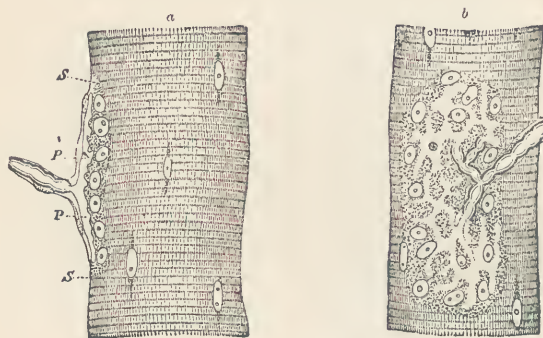 a b
S
P
P
S